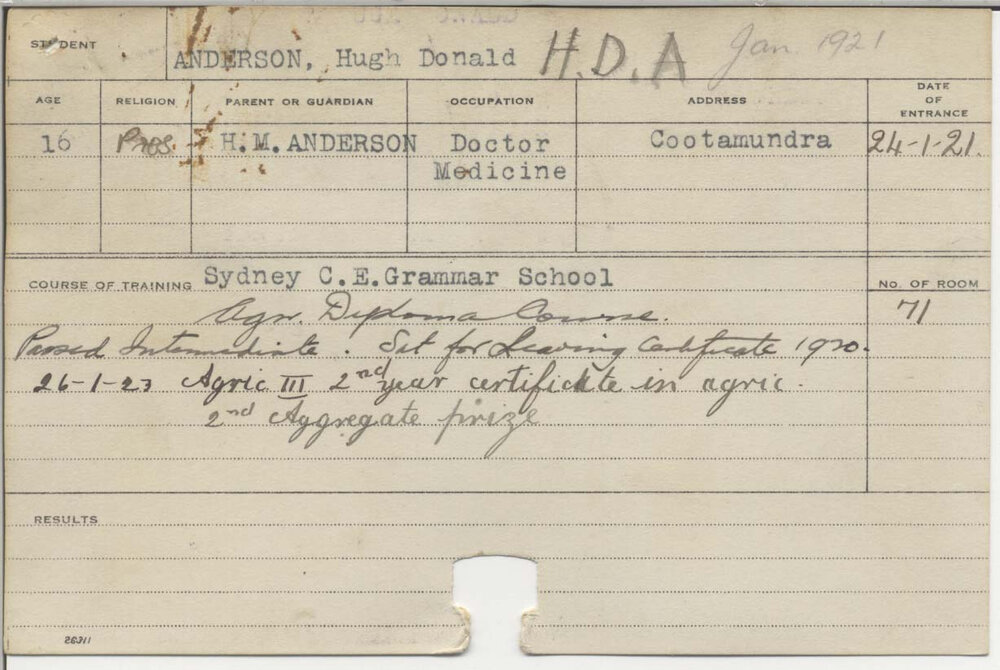 STUDENT
ANDERSON, Hugh Donald H.D.A Jan. 1921
AGE RELIGION PARENT OR GUARDIAN OCCUPATION ADDRESS DATE OF ENTRANCE
16 Pres. H.M. ANDERSON Doctor Cootamundra 24-1-21.
Medicine
COURSE OF TRAINING Sydney C.E.Grammar School No. OF ROOM
Agr. Diploma Course. 71
Passed Intermediate. Sat for Leaving Certificate 1920.
26-1-23 Agric III 2nd year certificate in agric.
2nd Aggregate prize
RESULTS
26311